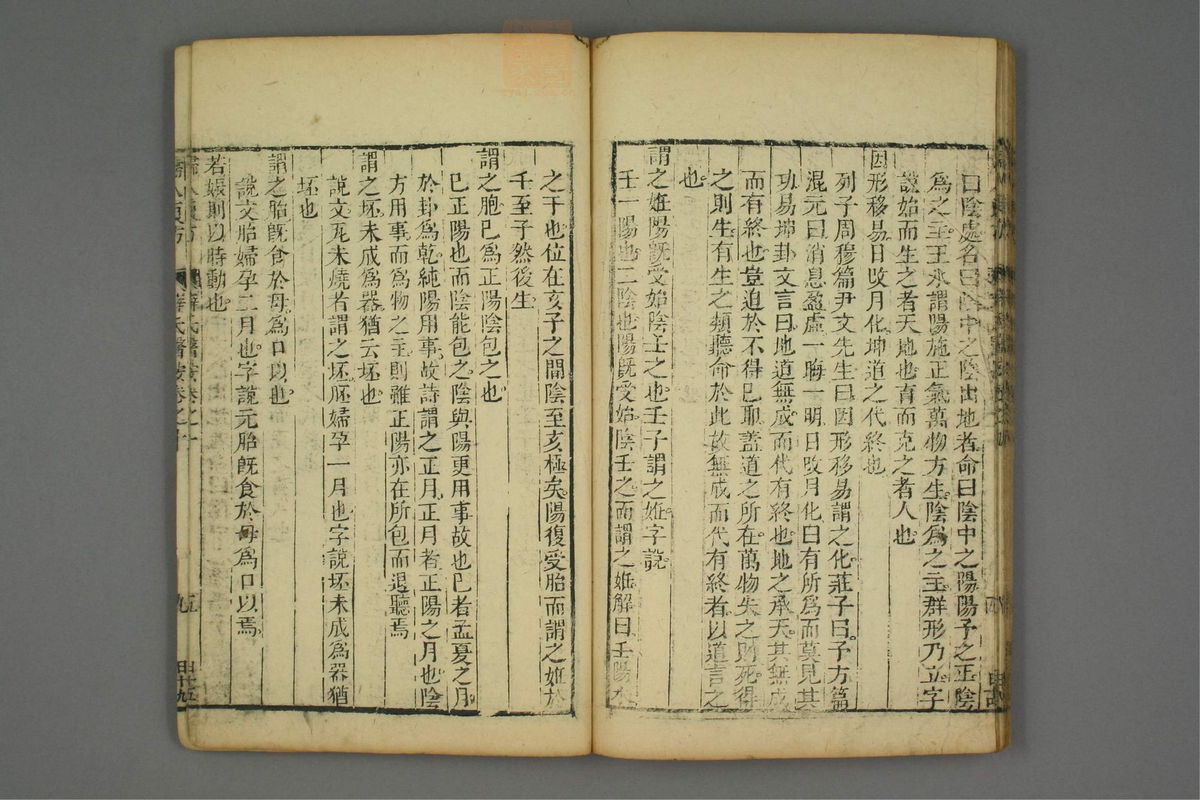 曰陰處名曰陰中之陰出地者命曰陰中之陽陽子之正陰
爲之主王氷謂陽施正氣萬物方生陰爲之主群形乃立字
說始而生之者天地也育而克之者人也
因形移易日改月化坤道之代終也
列子周穆篇尹文先生曰因形移易謂之化莊子曰子方篇
混元曰消息盈虛一晦一明日改月化日有所爲而莫見其
功易坤卦文言曰地道無成而代有終也地之承天其無成
而有終也豈迫於不得已耶蓋道之所在萬物失之則死得
之則生有生之類聽命於此故無成而代有終者以道言之
也
謂之姙陽旣受始陰壬之也壬子謂之姙字說
壬一陽也二陰也陽旣受始陰壬之而謂之姙解曰壬陽水
之干也位在亥子之間陰至亥極矣陽復受胎而謂之姙於
壬至子然後生
謂之胞已爲正陽陰包之也
巳正陽也而陰能包之陰與陽更用事故也巳者孟夏之月
於卦爲乾純陽用事故詩謂之正月正月者正陽之月也陰
方用事而爲物之主則雖正陽亦在所包而退聽焉
謂之坯未成爲器猶云坯也
說文瓦未燒者謂之坯胚婦孕一月也字說坯未成爲器猶
坯也
謂之胎旣食於母爲口以也
說文胎婦孕二月也字說元胎旣食於母爲口以焉
若娠則以時動也